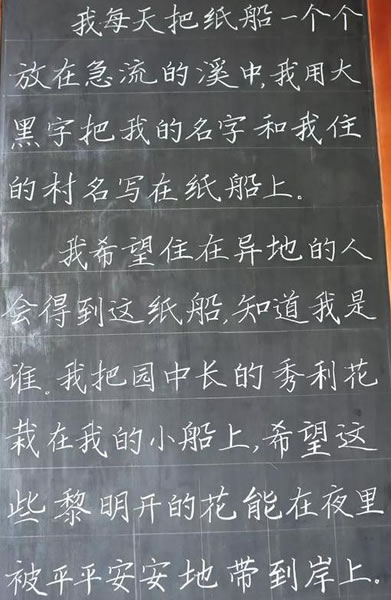 我每天把纸船一个个
放在急流的溪中,我用大
黑字把我的名字和我住
的村名写在纸船上。
我希望住在异地的人
会得到这纸船,知道我是
谁。我把园中长的秀利花
栽在我的小船上,希望这
些黎明开的花能在夜里
被平平安安地带到岸上。